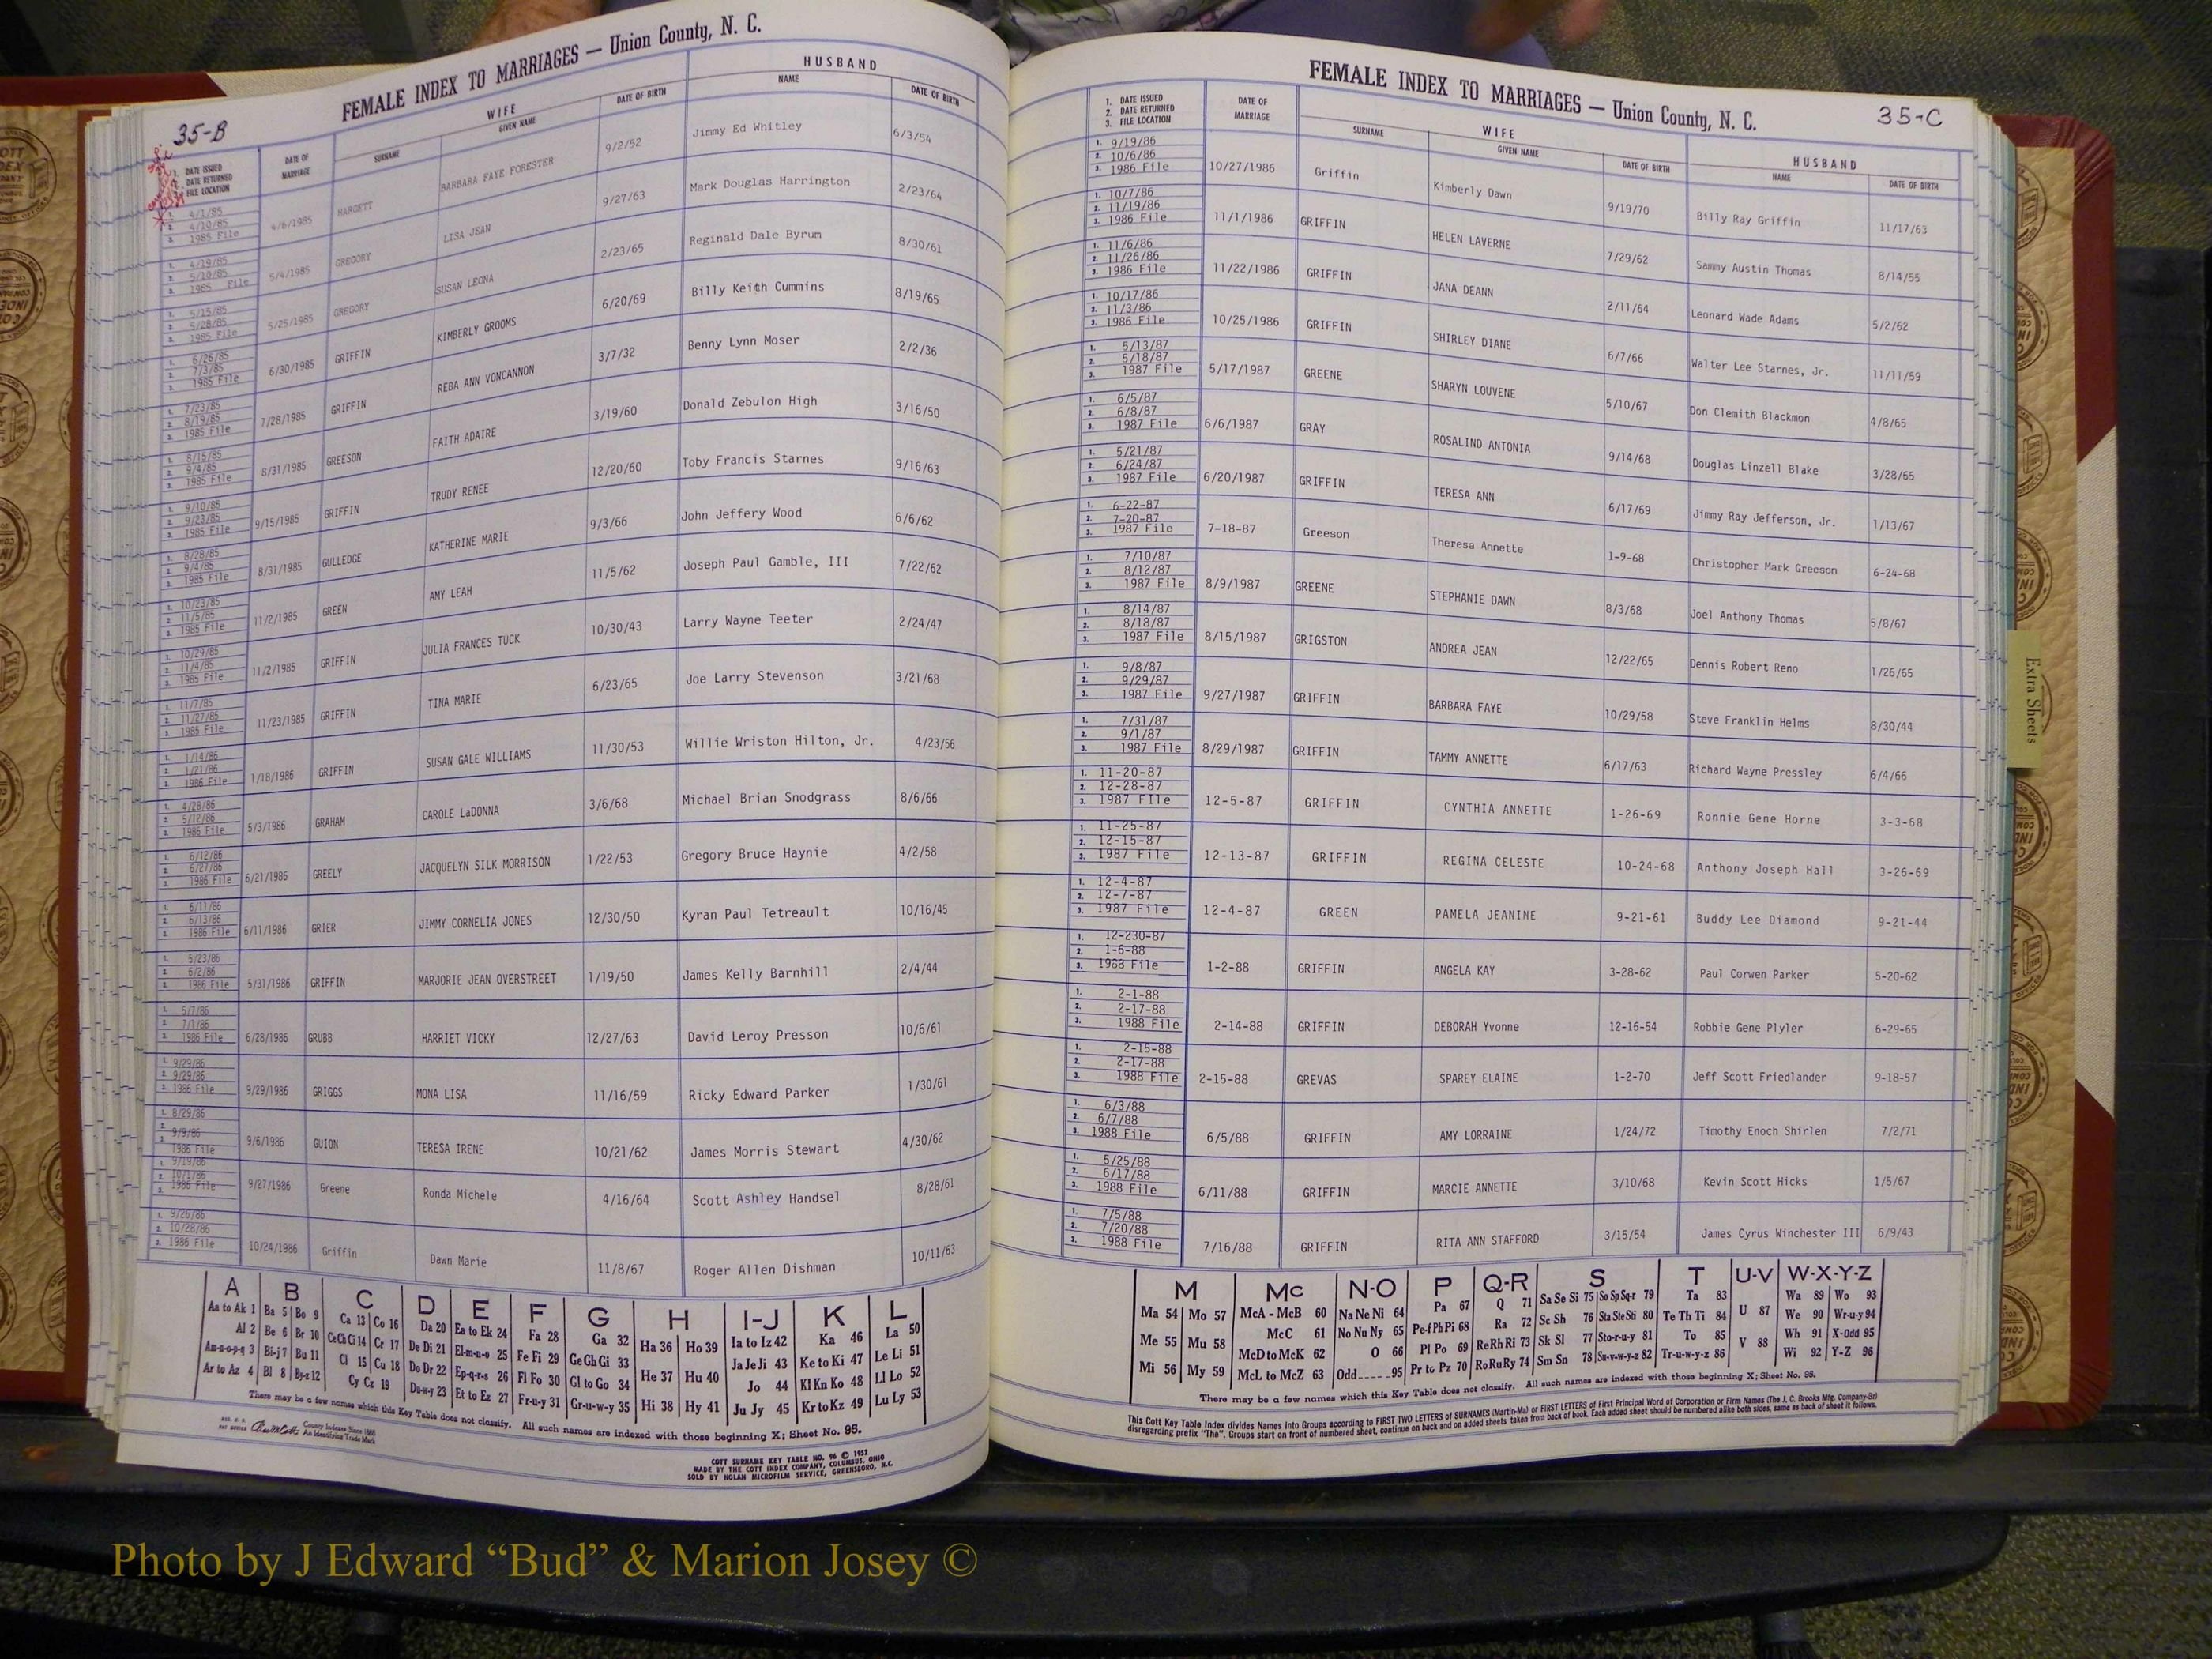 35-B
FEMALE INDEX TO MARRIAGES — Union County, N. C.
1. DATE ISSUED 2. DATE RETURNED 3. FILE LOCATION
DATE OF MARRIAGE
WIFE
SURNAME GIVEN NAME DATE OF BIRTH
HUSBAND
NAME DATE OF BIRTH
1. 4/1/85 2. 4/10/85 3. 1985 File 4/6/1985 HARGETT BARBARA FAYE FORESTER 9/2/52 Jimmy Ed Whitley 6/3/54
1. 4/19/85 2. 5/10/85 3. 1985 File 5/4/1985 GREGORY LISA JEAN 9/27/63 Mark Douglas Harrington 2/23/64
1. 5/15/85 2. 5/28/85 3. 1985 File 5/25/1985 GREGORY SUSAN LEONA 2/23/65 Reginald Dale Byrum 8/30/61
1. 6/26/85 2. 7/3/85 3. 1985 File 6/30/1985 GRIFFIN KIMBERLY GROOMS 6/20/69 Billy Keith Cummins 8/19/65
1. 7/23/85 2. 8/19/85 3. 1985 File 7/28/1985 GRIFFIN REBA ANN VONCANNON 3/7/32 Benny Lynn Moser 2/2/36
1. 8/15/85 2. 9/4/85 3. 1985 File 8/31/1985 GREESON FAITH ADAIRE 3/19/60 Donald Zebulon High 3/16/50
1. 9/10/85 2. 9/23/85 3. 1985 File 9/15/1985 GRIFFIN TRUDY RENEE 12/20/60 Toby Francis Starnes 9/16/63
1. 8/28/85 2. 9/4/85 3. 1985 File 8/31/1985 GULLEDGE KATHERINE MARIE 9/3/66 John Jeffery Wood 6/6/62
1. 10/23/85 2. 11/5/85 3. 1985 File 11/2/1985 GREEN AMY LEAH 11/5/62 Joseph Paul Gamble, III 7/22/62
1. 10/29/85 2. 11/4/85 3. 1985 File 11/2/1985 GRIFFIN JULIA FRANCES TUCK 10/30/43 Larry Wayne Teeter 2/24/47
1. 11/7/85 2. 11/27/85 3. 1985 File 11/23/1985 GRIFFIN TINA MARIE 6/23/65 Joe Larry Stevenson 3/21/68
1. 1/14/86 2. 1/21/86 3. 1986 File 1/18/1986 GRIFFIN SUSAN GALE WILLIAMS 11/30/53 Willie Wriston Hilton, Jr. 4/23/56
1. 4/28/86 2. 5/12/86 3. 1986 File 5/3/1986 GRAHAM CAROLE LaDONNA 3/6/68 Michael Brian Snodgrass 8/6/66
1. 6/12/86 2. 6/27/86 3. 1986 File 6/21/1986 GREELY JACQUELYN SILK MORRISON 1/22/53 Gregory Bruce Haynie 4/2/58
1. 6/11/86 2. 6/13/86 3. 1986 File 6/11/1986 GRIER JIMMY CORNELIA JONES 12/30/50 Kyran Paul Tetreault 10/16/45
1. 5/23/86 2. 6/2/86 3. 1986 File 5/31/1986 GRIFFIN MARJORIE JEAN OVERSTREET 1/19/50 James Kelly Barnhill 2/4/44
1. 5/7/86 2. 7/1/86 3. 1986 File 6/28/1986 GRUBB HARRIET VICKY 12/27/63 David Leroy Presson 10/6/61
1. 9/29/86 2. 9/29/86 3. 1986 File 9/29/1986 GRIGGS MONA LISA 11/16/59 Ricky Edward Parker 1/30/61
1. 8/29/86 2. 9/9/86 1986 File 9/6/1986 GUION TERESA IRENE 10/21/62 James Morris Stewart 4/30/62
1. 9/19/86 2. 10/1/86 3. 1986 File 9/27/1986 Greene Ronda Michele 4/16/64 Scott Ashley Handsel 8/28/61
1. 9/26/86 2. 10/28/86 3. 1986 File 10/24/1986 Griffin Dawn Marie 11/8/67 Roger Allen Dishman 10/11/63
A B C D E F G H I-J K L
Aa to Ak 1 Ba 5 Bo 9 Ca 13 Co 16 Da 20 Ea to Ek 24 Fa 28 Ga 32 Ha 36 Ho 39 Ia to Iz 42 Ka 46 La 50
Al 2 Be 6 Br 10 CeChCi 14 Cr 17 De Di 21 El-m-n-o 25 Fe Fi 29 GeGhGi 33 He 37 Hu 40 JaJeJi 43 Ke to Ki 47 Le Li 51
Am-n-o-p-q 3 Bi-j 7 Bu 11 Cl 15 Cu 18 Do Dr 22 Ep-q-r-s 26 Fl Fo 30 Gl to Go 34 Hi 38 Hy 41 Jo 44 Kl Kn Ko 48 Ll Lo 52
Ar to Az 4 Bl 8 By-z 12 Cy Cz 19 Du-w-y 23 Et to Ez 27 Fr-u-y 31 Gr-u-w-y 35 Ju Jy 45 Kr to Kz 49 Lu Ly 53
There may be a few names which this Key Table does not classify. All such names are indexed with those beginning X; Sheet No. 95.
County Indexes Since 1888
An Identifying Trade Mark
COTT SURNAME KEY TABLE NO. 96 © 1952
MADE BY THE COTT INDEX COMPANY, COLUMBUS, OHIO
SOLD BY NOLAN MICROFILM SERVICE, GREENSBORO, N.C.
FEMALE INDEX TO MARRIAGES — Union County, N. C.
35-C
1. DATE ISSUED 2. DATE RETURNED 3. FILE LOCATION
DATE OF MARRIAGE
WIFE
SURNAME GIVEN NAME DATE OF BIRTH
HUSBAND
NAME DATE OF BIRTH
1. 9/19/86 2. 10/6/86 3. 1986 File 10/27/1986 Griffin Kimberly Dawn 9/19/70 Billy Ray Griffin 11/17/63
1. 10/7/86 2. 11/19/86 3. 1986 File 11/1/1986 GRIFFIN HELEN LAVERNE 7/29/62 Sammy Austin Thomas 8/14/55
1. 11/6/86 2. 11/26/86 3. 1986 File 11/22/1986 GRIFFIN JANA DEANN 2/11/64 Leonard Wade Adams 5/2/62
1. 10/17/86 2. 11/3/86 3. 1986 File 10/25/1986 GRIFFIN SHIRLEY DIANE 6/7/66 Walter Lee Starnes, Jr. 11/11/59
1. 5/13/87 2. 5/18/87 3. 1987 File 5/17/1987 GREENE SHARYN LOUVENE 5/10/67 Don Clemith Blackmon 4/8/65
1. 6/5/87 2. 6/8/87 3. 1987 File 6/6/1987 GRAY ROSALIND ANTONIA 9/14/68 Douglas Linzell Blake 3/28/65
1. 5/21/87 2. 6/24/87 3. 1987 File 6/20/1987 GRIFFIN TERESA ANN 6/17/69 Jimmy Ray Jefferson, Jr. 1/13/67
1. 6-22-87 2. 7-20-87 3. 1987 File 7-18-87 Greeson Theresa Annette 1-9-68 Christopher Mark Greeson 6-24-68
1. 7/10/87 2. 8/12/87 3. 1987 File 8/9/1987 GREENE STEPHANIE DAWN 8/3/68 Joel Anthony Thomas 5/8/67
1. 8/14/87 2. 8/18/87 3. 1987 File 8/15/1987 GRIGSTON ANDREA JEAN 12/22/65 Dennis Robert Reno 1/26/65
1. 9/8/87 2. 9/29/87 3. 1987 File 9/27/1987 GRIFFIN BARBARA FAYE 10/29/58 Steve Franklin Helms 8/30/44
1. 7/31/87 2. 9/1/87 3. 1987 File 8/29/1987 GRIFFIN TAMMY ANNETTE 6/17/63 Richard Wayne Pressley 6/4/66
1. 11-20-87 2. 12-28-87 3. 1987 FIle 12-5-87 GRIFFIN CYNTHIA ANNETTE 1-26-69 Ronnie Gene Horne 3-3-68
1. 11-25-87 2. 12-15-87 3. 1987 File 12-13-87 GRIFFIN REGINA CELESTE 10-24-68 Anthony Joseph Hall 3-26-69
1. 12-4-87 2. 12-7-87 3. 1987 File 12-4-87 GREEN PAMELA JEANINE 9-21-61 Buddy Lee Diamond 9-21-44
1. 12-230-87 2. 1-6-88 3. 1988 File 1-2-88 GRIFFIN ANGELA KAY 3-28-62 Paul Corwen Parker 5-20-62
1. 2-1-88 2. 2-17-88 3. 1988 File 2-14-88 GRIFFIN DEBORAH Yvonne 12-16-54 Robbie Gene Plyler 6-29-65
1. 2-15-88 2. 2-17-88 3. 1988 File 2-15-88 GREVAS SPAREY ELAINE 1-2-70 Jeff Scott Friedlander 9-18-57
1. 6/3/88 2. 6/7/88 3. 1988 File 6/5/88 GRIFFIN AMY LORRAINE 1/24/72 Timothy Enoch Shirlen 7/2/71
1. 5/25/88 2. 6/17/88 3. 1988 File 6/11/88 GRIFFIN MARCIE ANNETTE 3/10/68 Kevin Scott Hicks 1/5/67
1. 7/5/88 2. 7/20/88 3. 1988 File 7/16/88 GRIFFIN RITA ANN STAFFORD 3/15/54 James Cyrus Winchester III 6/9/43
M Mc N-O P Q-R S T U-V W-X-Y-Z
Ma 54 Mo 57 McA - McB 60 Na Ne Ni 64 Pa 67 Q 71 Sa Se Si 75 So Sp Sq-r 79 Ta 83 U 87 Wa 89 Wo 93
Me 55 Mu 58 McC 61 No Nu Ny 65 Pe-f Ph Pi 68 Ra 72 Sc Sh 76 Sta Ste Sti 80 Te Th Ti 84 V 88 We 90 Wr-u-y 94
Mi 56 My 59 McD to McK 62 O 66 Pl Po 69 ReRhRi 73 Sk Sl 77 Sto-r-u-y 81 To 85 Wh 91 X-Odd 95
McL to McZ 63 Odd 95 Pr to Pz 70 RoRuRy 74 Sm Sn 78 Su-v-w-y-z 82 Tr-u-w-y-z 86 Wi 92 Y-Z 96
There may be a few names which this Key Table does not classify. All such names are indexed with those beginning X; Sheet No. 95.
This Cott Key Table Index divides Names into Groups according to FIRST TWO LETTERS of SURNAMES (Martin-Ma) or FIRST LETTERS of First Principal Word of Corporation or Firm Names (The J. C. Brooks Mfg. Company-Br)
disregarding prefix "The". Groups start on front of numbered sheet, continue on back and on added sheets taken from back of book. Each added sheet should be numbered alike both sides, same as back of sheet it follows.
Extra Sheets
Photo by J Edward “Bud” & Marion Josey ©